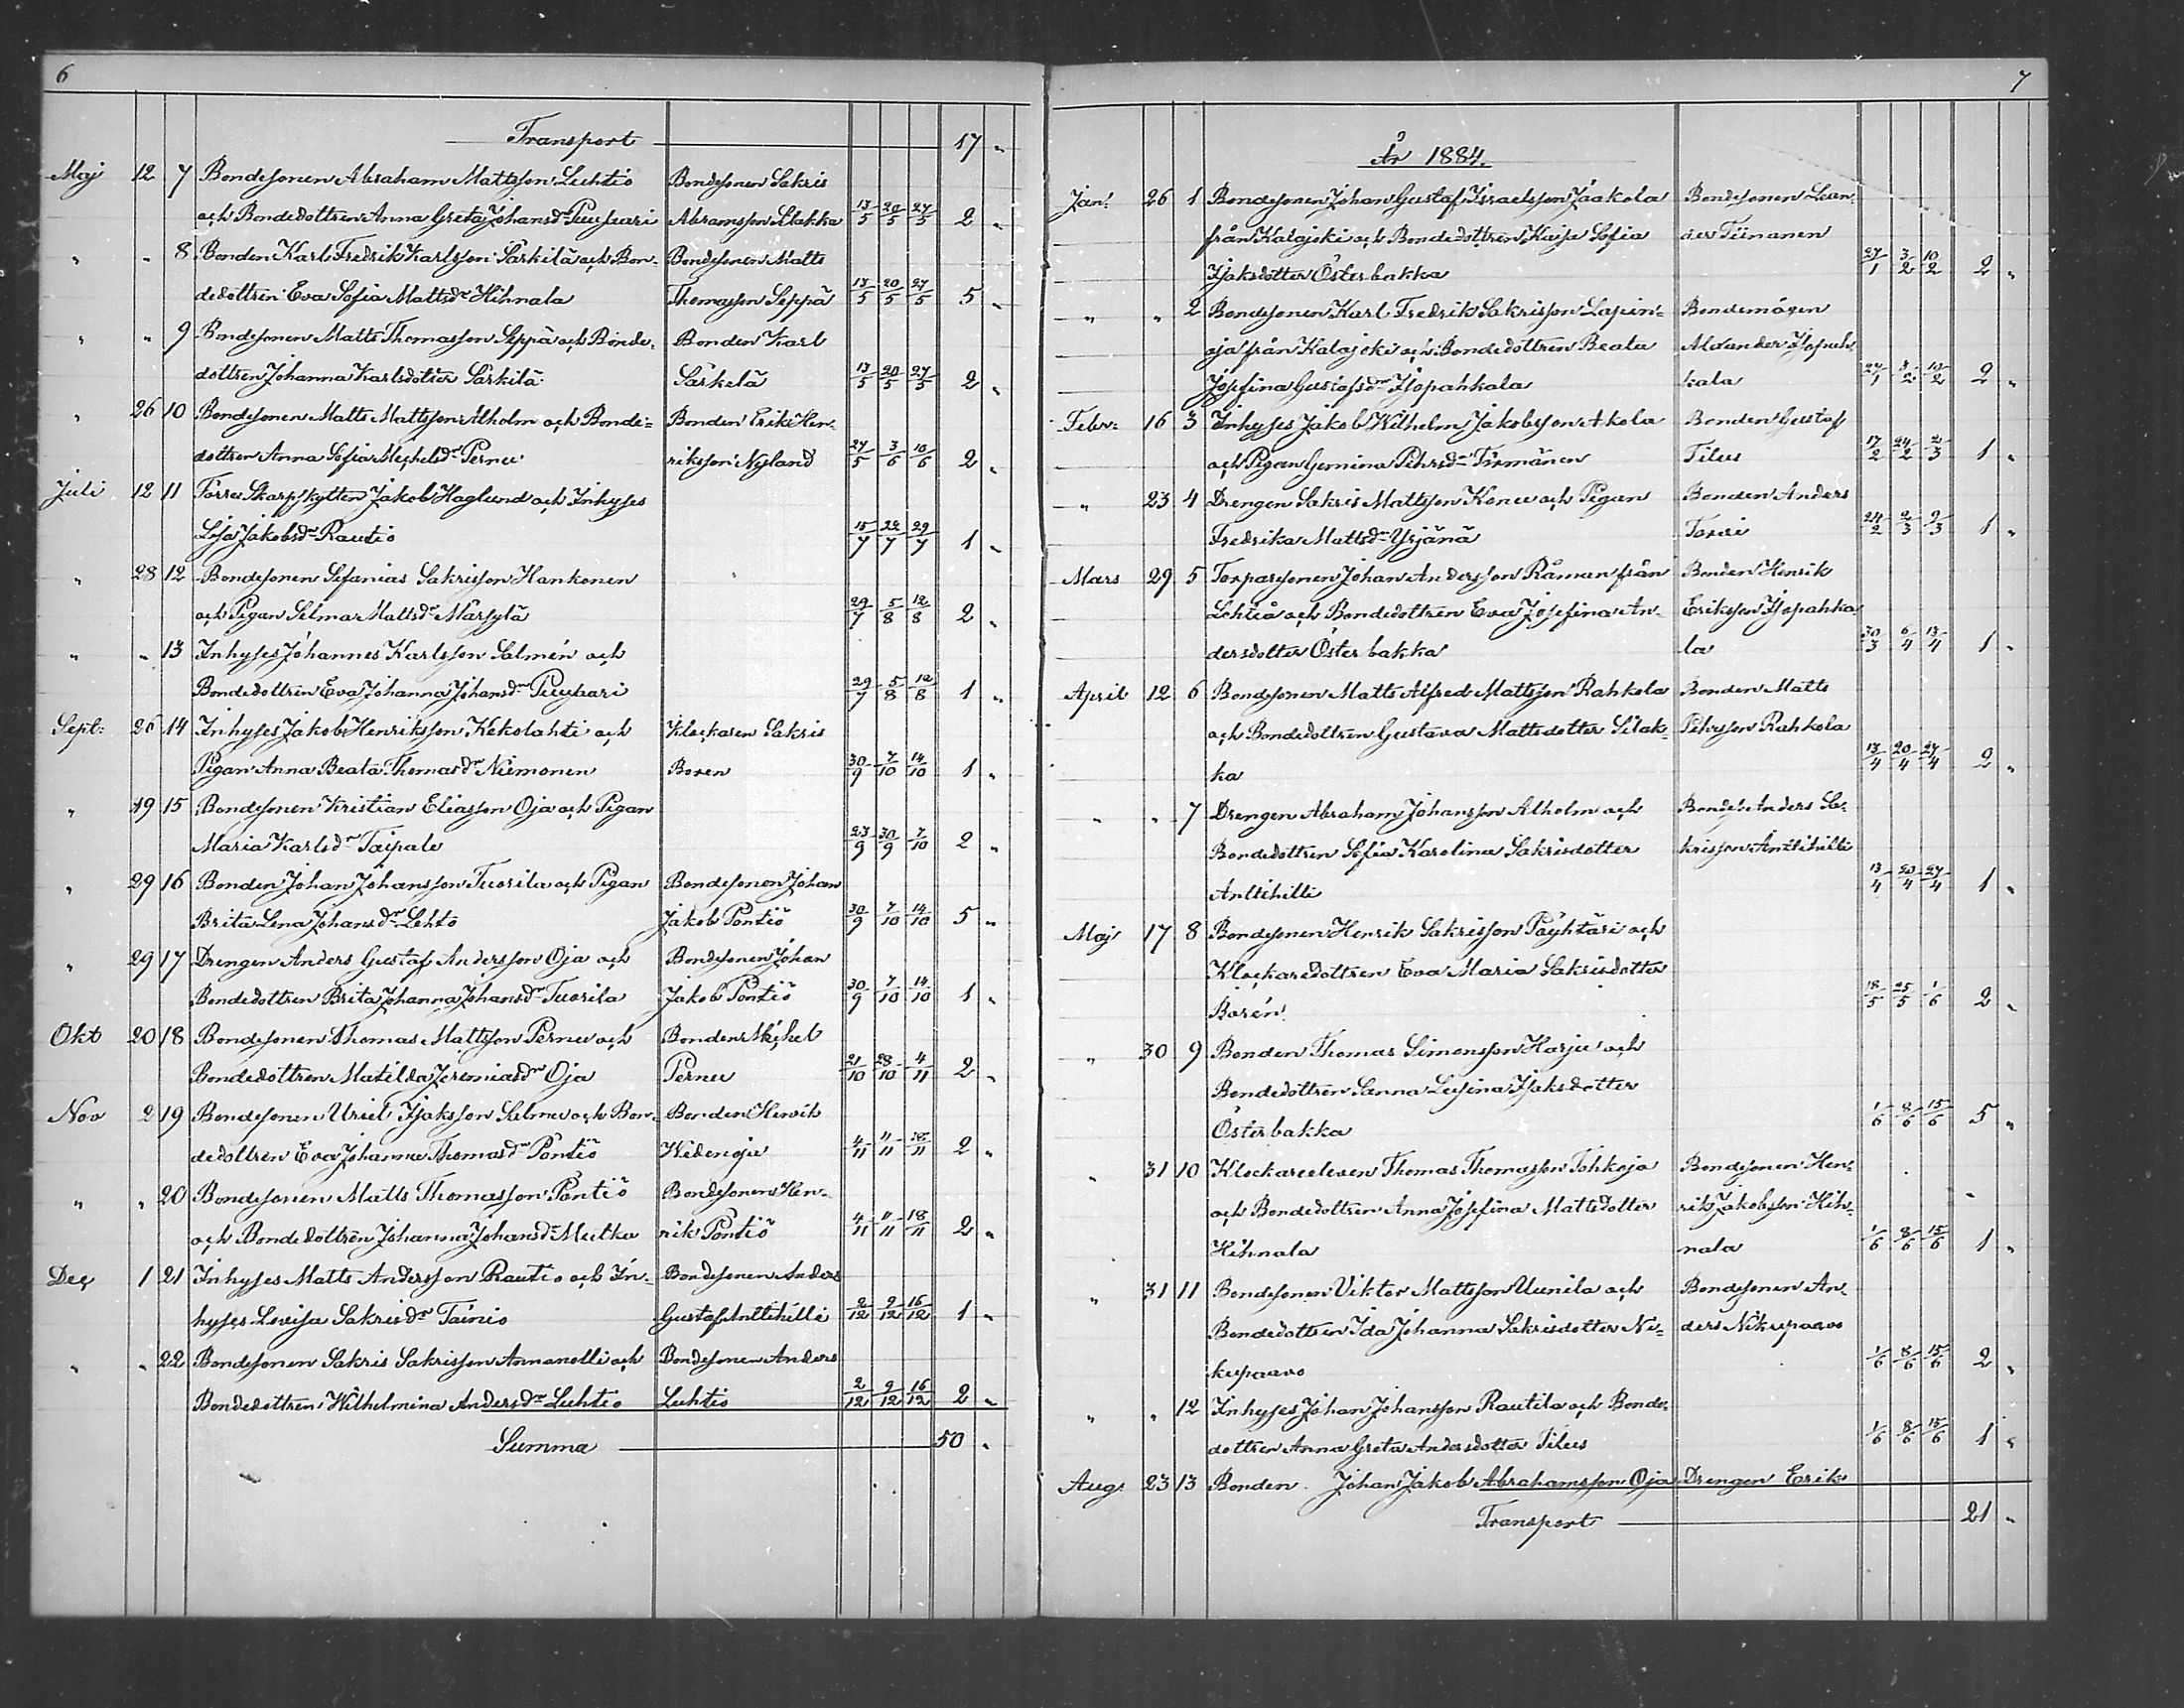 6
Transport 17 "
Maj 12 7 Bondesonen Abraham Mattsson Luhtio Bondesonen Sakris
och Bondedottren Anna Greta Johansdr Puupuari Abramsson Slakka 13/5 20/5 27/5 2 "
" " 8 Bonden Karl Fredrik Karlsson Särkilä och Bon- Bondesonen Matts
dedottren Eva Sofia Mattsdr Hihnala Thomasson Seppä 13/5 20/5 27/5 5 "
" " 9 Bondesonen Matts Thomasson Seppä och Bonde- Bonden Karl
dottren Johanna Karlsdotter Särkilä Särkelä 13/5 20/5 27/5 2 "
" 26 10 Bondesonen Matts Mattsson Alholm och Bonde- Bonden Erik Hen-
dottren Anna Sofia Michelsdr Pernu riksson Nyland 27/5 3/6 10/6 2 "
Juli 12 11 Förre Skarpskytten Jakob Haglund och Inhyses
Lisa Jakobsdr Rautio 15/7 22/7 29/7 1 "
" 28 12 Bondesonen Sefanias Sakrisson Hankonen
och Pigan Selma Mattsdr Märsylä 29/7 5/8 12/8 2 "
" " 13 Inhyses Johannes Karlsson Salmén och
Bondedottren Eva Johanna Johansdr Puupari 29/7 5/8 12/8 1 "
Sept: 26 14 Inhyses Jakob Henriksson Kekolahti och Klockaren Sakris
Pigan Anna Beata Thomasdr Niemonen Boren 30/9 7/10 14/10 1 "
" 19 15 Bondesonen Kristian Eliasson Oja och Pigan
Maria Karlsdr Taipale 23/9 30/9 7/10 2 "
" 29 16 Bonden Johan Johansson Tuorila och Pigan Bondesonen Johan
Brita Lena Johansdr Lehto Jakob Pontiö 30/9 7/10 14/10 5 "
" 29 17 Drengen Anders Gustaf Andersson Oja och Bondesonen Johan
Bondedottren Brita Johanna Johansdr Tuorila Jakob Pontiö 30/9 7/10 14/10 1 "
Okt 20 18 Bondesonen Thomas Mattsson Pernu och Bonden Michel
Bondedottren Matilda Jeremiasdr Oja Pernu 21/10 28/10 4/11 2 "
Nov 2 19 Bondesonen Uriel Isaksson Salmu och Bon- Bonden Henrik
dedottren Eva Johanna Thomasdr Pontiö Widenoja 4/11 11/11 18/11 2 "
" " 20 Bondesonen Matts Thomasson Pontiö Bondesonen Hen-
och Bondedottren Johanna Johansdr Mutka rik Pontiö 4/11 11/11 18/11 2 "
Dec 1 21 Inhyses Matts Andersson Rautio och In- Bondesonen Anders
hyses Lovisa Sakrisdr Tainio Gustaf Anttihilli 2/12 9/12 16/12 1 "
" " 22 Bondesonen Sakris Sakrisson Annanolli och Bondesonen Anders
Bondedottren Wilhelmina Andersdr Luhtio Luhtio 2/12 9/12 16/12 2 "
Summa 50 "
7
År 1884.
Jan: 26 1 Bondesonen Johan Gustaf Israelsson Jaakola Bondesonen Lean-
från Kalajoki och Bondedottren Kajsa Sofia der Tiinanen
Isaksdotter Österbakka 27/1 3/2 10/2 2 "
" " 2 Bondesonen Karl Fredrik Sakrisson Lapin- Bondemågen
oja från Kalajoki och Bondedottren Beata Alexander Isopah-
Josefina Gustafsdr Isopahkala kala 27/1 3/2 10/2 2 "
Febr: 16 3 Inhyses Jakob Wilhelm Jakobsson Akola Bonden Gustaf
och Pigan Gemina Pehrsdr Törmänen Tilus 17/2 24/2 2/3 1 "
" 23 4 Drengen Sakris Mattsson Konu och Pigan Bonden Anders
Fredrika Mattsdr Yrjänä Torvi 24/2 2/3 9/3 1 "
Mars 29 5 Torparsonen Johan Andersson Råman från Bonden Henrik
Lohteå och Bondedottren Eva Josefina An- Eriksson Isopahka
dersdotter Österbakka la 30/3 6/4 13/4 1 "
April 12 6 Bondesonen Matts Alfred Mattsson Rahkola Bonden Matts
och Bondedottren Gustava Mattsdotter Silak- Pehrsson Rahkola
ka 13/4 20/4 27/4 2 "
" " 7 Drengen Abraham Johansson Alholm och Bondes: Anders Sa-
Bondedottren Sofia Karolina Sakrisdotter krisson Anttihilli
Anttihilli 13/4 20/4 27/4 1 "
Maj 17 8 Bondesonen Henrik Sakrisson Pöyhtäri och
Klockaredottren Eva Maria Sakrisdotter
Borén 18/5 25/5 1/6 2 "
" 30 9 Bonden Thomas Simonsson Harju och
Bondedottren Sanna Lusina Isaksdotter
Österbakka 1/6 8/6 15/6 5 "
" 31 10 Klockareeleven Thomas Thomasson Tohkoja Bondesonen Hen-
och Bondedottren Anna Josefina Mattsdotter rik Jakobsson Hih-
Hihnala nala 1/6 8/6 15/6 1 "
" 31 11 Bondesonen Viktor Mattsson Uunila och Bondesonen An-
Bondedottren Ida Johanna Sakrisdotter Ni- ders Nikupaavo
kupaavo 1/6 8/6 15/6 2 "
" " 12 Inhyses Johan Johansson Rautila och Bonde-
dottren Anna Greta Andersdotter Tilus 1/6 8/6 15/6 1 "
Aug: 23 13 Bonden Johan Jakob Abrahamsson Oja Drengen Erik
Transport 21 "